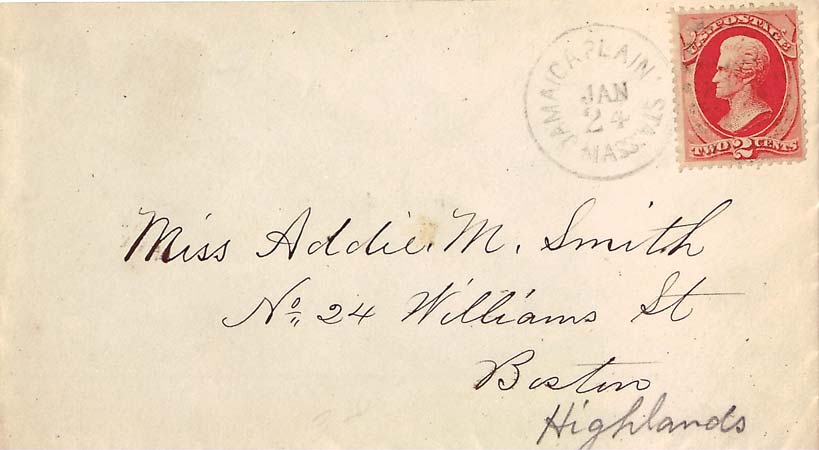 U.S. POSTAGE
TWO 2 CENTS
JAMAICA PLAIN STA.
JAN
24
MASS.
Miss Addie. M. Smith
No. 24 Williams St
Boston
Highlands